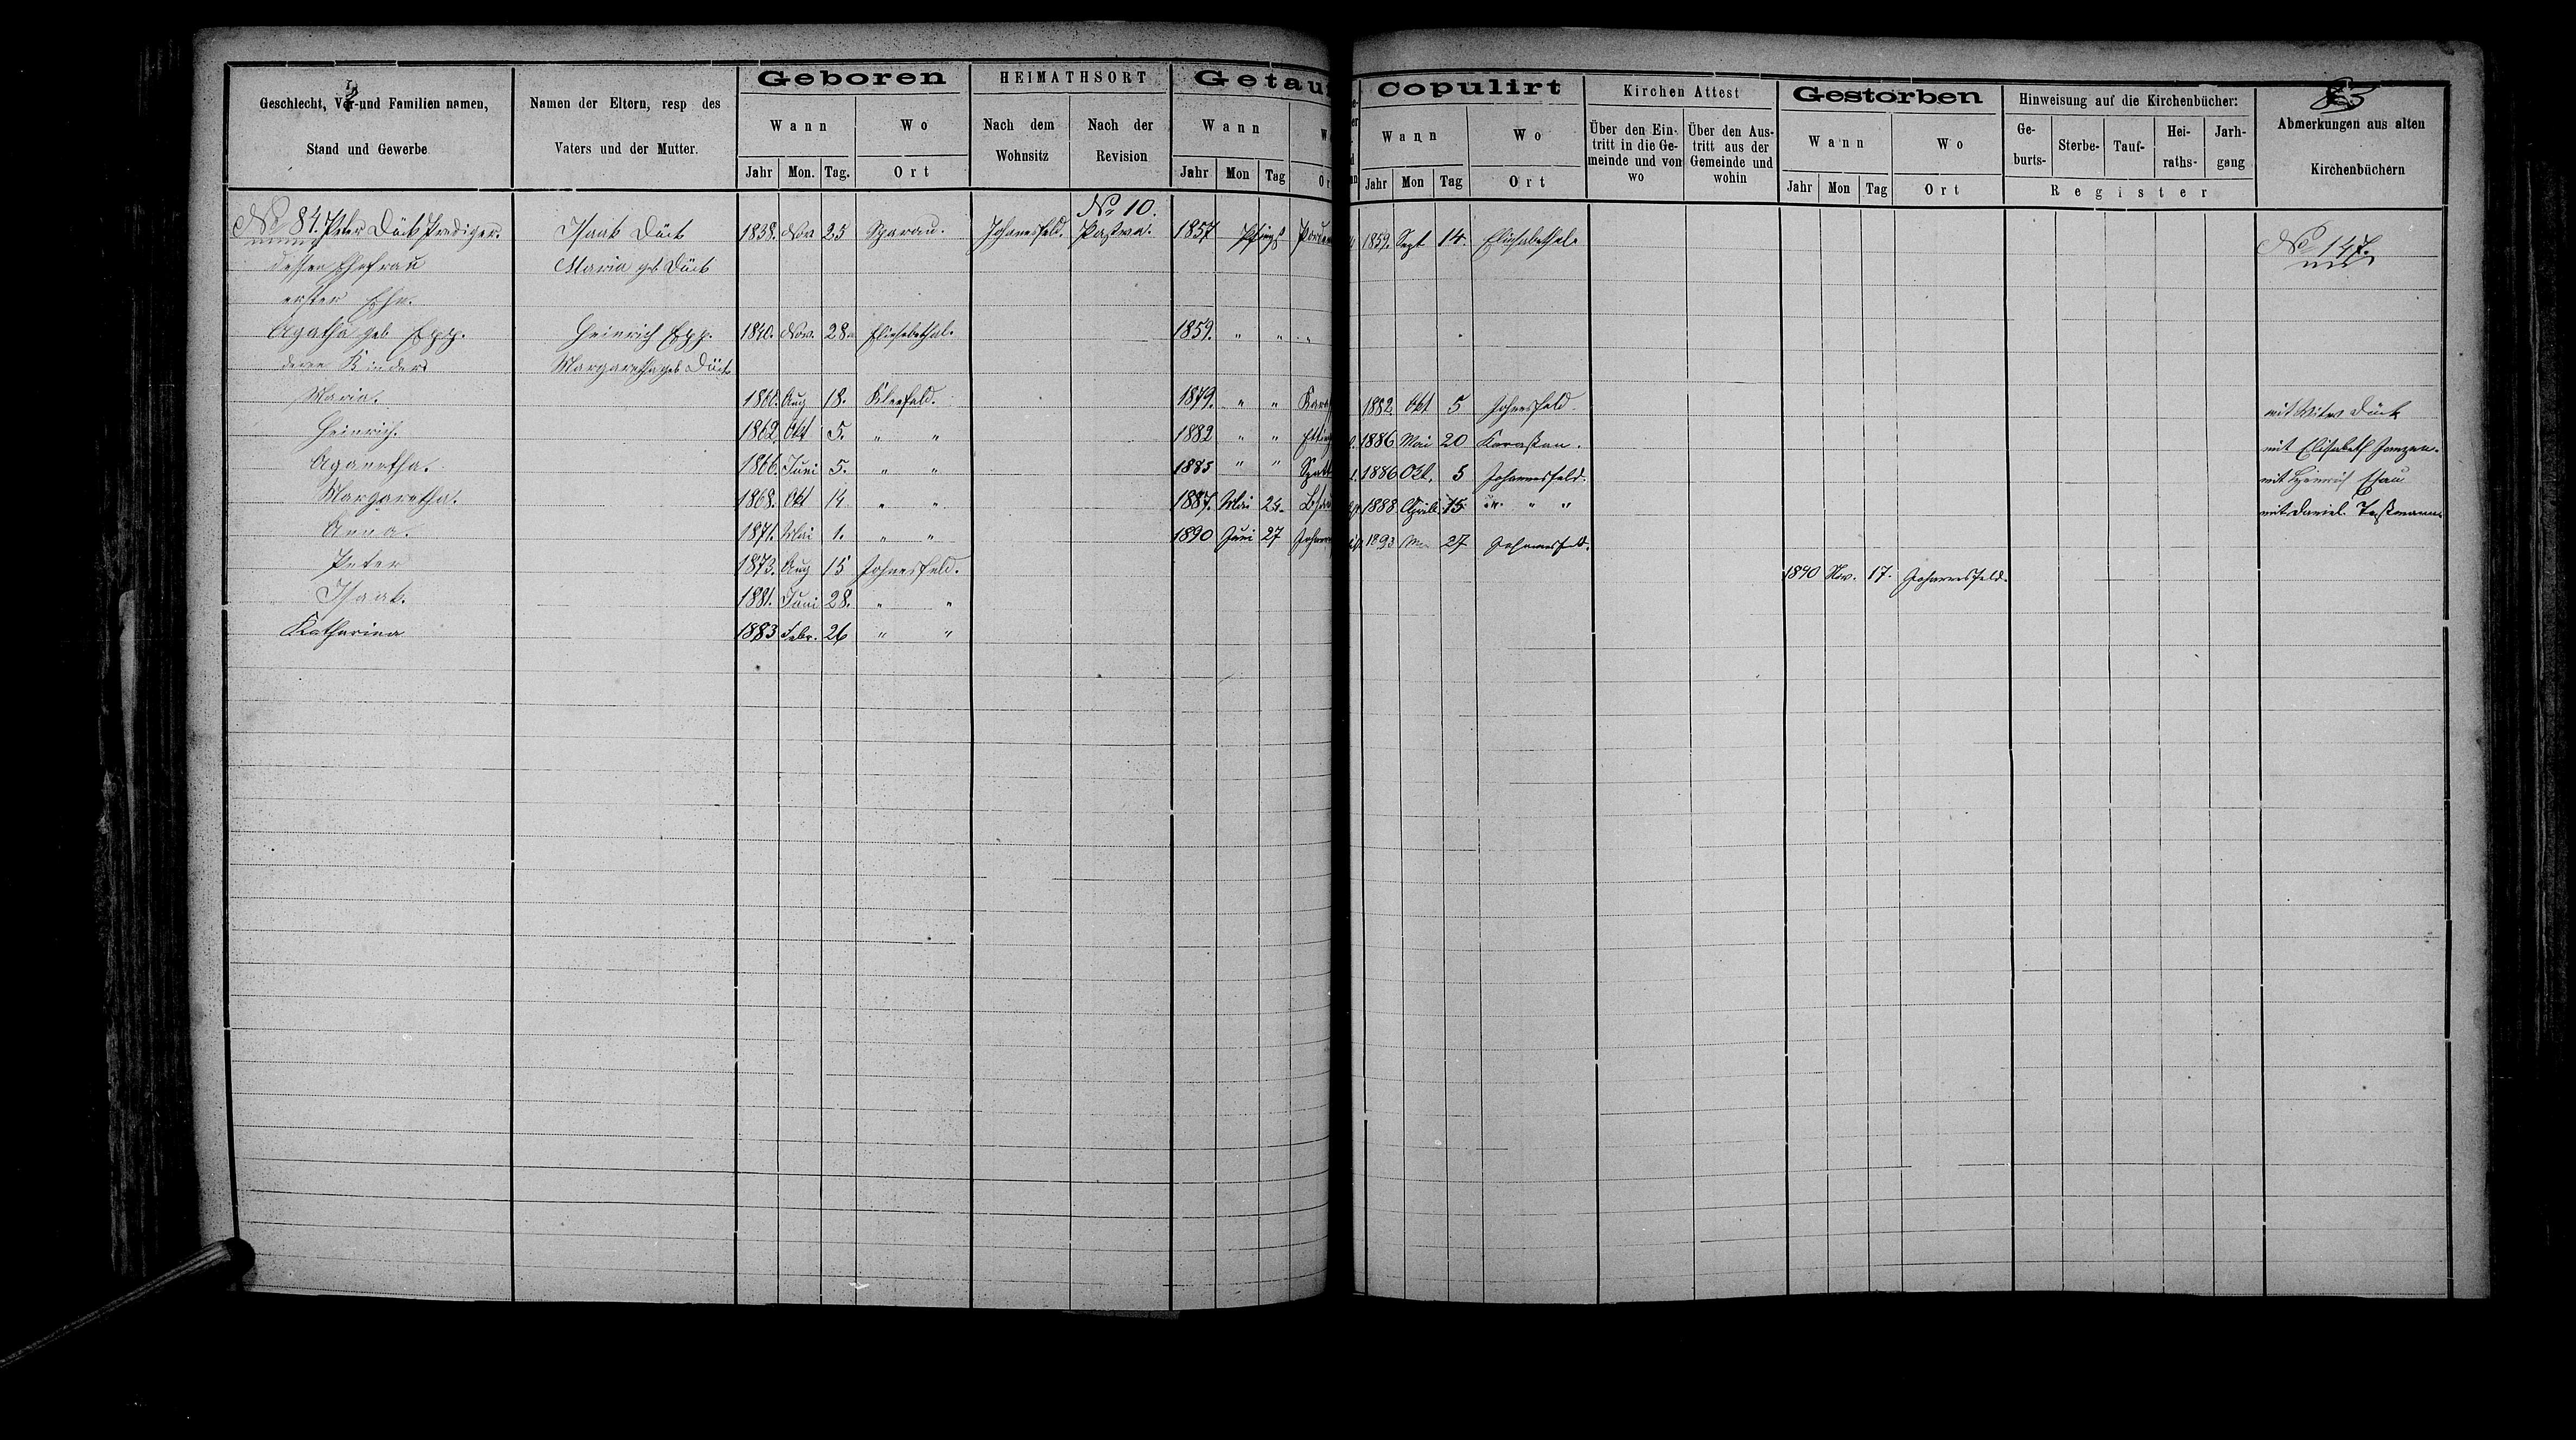 Geschlecht, Vor-und Familien namen,
Stand und Gewerbe
Namen der Eltern, resp des
Vaters und der Mutter.
Geboren
Wann
Wo
Jahr Mon. Tag. Ort
HEIMATHSORT
Nach dem Wohnsitz
Nach der Revision
Getau
Wann
Jahr Mon Tag
Copulirt
Wann
Wo
Jahr Mon Tag Ort
Kirchen Attest
Über den Ein-
tritt in die Ge-
meinde und von
wo
Über den Aus-
tritt aus der
Gemeinde und
wohin
Gestorben
Wann
Wo
Jahr Mon Tag Ort
Hinweisung auf die Kirchenbücher:
Ge-
burts-
Sterbe-
Tauf-
Hei-
raths-
Jarh-
gang
Register
83
Abmerkungen aus alten
Kirchenbüchern
No 10.
No 84. Peter Dück Prediger. Isaak Dück 1838. Nov 25 Sparau. Johanesfeld. Pastwa. 1857 Pfingst 1859. Sept 14. Elisabethal. No 147.
dessen Ehefrau Maria geb Dück
erster Ehe.
Agatha geb Epp. Heinrich Epp. 1840. Nov. 28. Elisabethal. 1859. " " "
deren Kinder Margaretha geb Dück
Maria. Aug 18. Kleefeld. 1879. " " 1882 Okt 5 Johnesfeld. mit Dück
Heinrich. 1862 Okt 5. " " 1882 " " 1886 Mai 20 Karassan. mit Elisabeth Janzen.
Aganetha. 1866. Juni 5. " " 1885 " " 1886 Okt. 5 Johannesfeld. mit Heinrich Esau
Margaretha. 1868. Okt 14 " " 1887. Mai 24. 1888 April 15 " " mit Daniel
Anna. 1871. Mai 1. " " 1890 Juni 27 1893 27 Johannesfeld.
Peter 1873. Aug 15 Johnesfeld. 1890 Nov. 17. Johannesfeld.
Isaak. 1881. Juni 28. " "
Katharina 1883 Febr. 26 " "